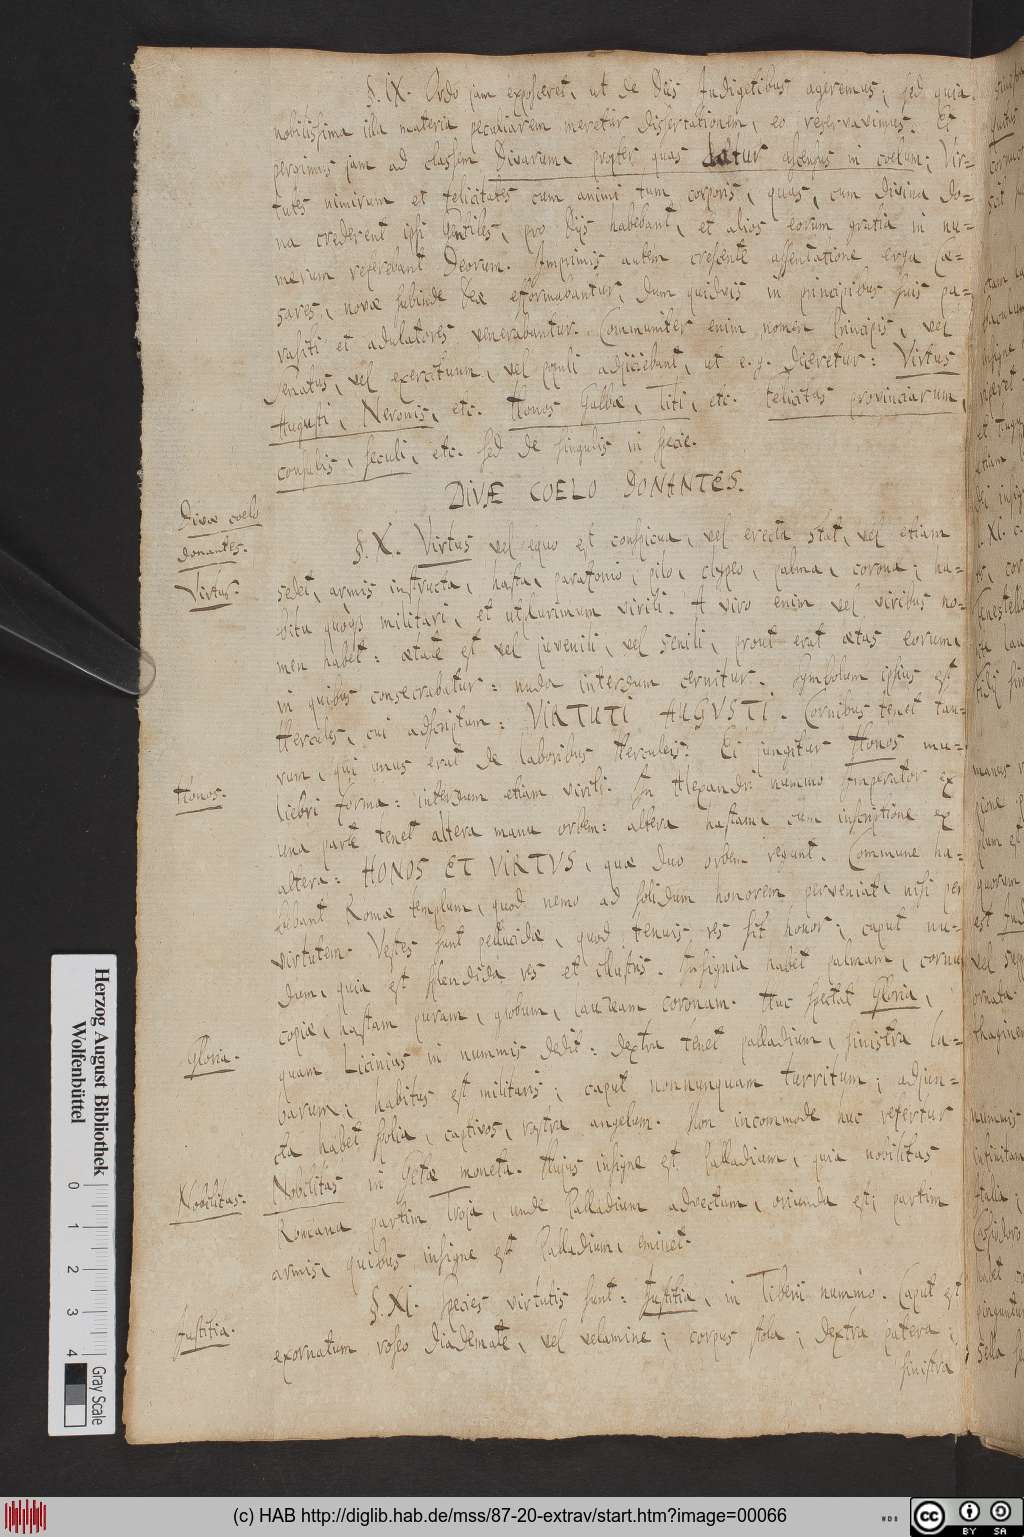 §. IX. Ordo jam exposceret, ut de Diis Indigetibus ageremus; sed quia
nobilissima illa materia peculiarem meretur dissertationem, eo reservavimus. Et
pergimus jam ad classem Divarum, propter quas datur ascensus in coelum; Vir-
tutes nimirum et felicitates cum animi tum corporis, quas, cum divina do-
na crederent ipsi Gentiles, pro Diis habebant, et alios eorum gratia in nu-
merum referebant Deorum. Imprimis autem crescente assentatione erga Cæ-
sares, novæ subinde Deæ efformabantur, dum quidvis in principibus suis pa-
rasiti et adulatores venerabantur. Communiter enim nomen Principis, vel
Senatus, vel exercituum, vel populi adjiciebant, ut e. g. diceretur: Virtus
Augusti, Neronis, etc. Honos Galbæ, Titi, etc. Felicitas provinciarum,
consulis, seculi, etc. sed de singulis in specie.
DIVÆ COELO DONANTES.
Divæ coelo
donantes.
§. X. Virtus vel equo est conspicua, vel erecta stat, vel etiam
Virtus.
sedet, armis instructa, hasta, parazonio, pilo, clypeo, palma, corona; ha-
bitu quoque militari, et utplurimum virili. A viro enim vel viribus no-
men habet: ætate est vel juvenili, vel senili, prout erat ætas eorum,
in quibus consecrabatur: nuda interdum cernitur. Symbolum ipsius est
Hercules, cui adscriptum: VIRTUTI AUGVSTI. Cornibus tenet tau-
rum, qui unus erat de laboribus Herculeis. Ei jungitur Honos mu-
Honos.
liebri forma: interdum etiam virili. In Alexandri nummo Imperator ex
una parte tenet altera manu orbem: altera hastam, cum inscriptione ex
altera: HONOS ET VIRTVS, quæ duo orbem regunt. Commune ha-
bebant Romæ templum, quod nemo ad solidum honorem perveniat, nisi per
virtutem. Vestes sunt pellucidæ, quod tenuis res sit honor; caput nu-
dum, quia est splendida res et illustris. Insignia habet palmam, cornu
copiæ, hastam puram, globum, lauream coronam. Huc spectat Gloria,
Gloria.
quam Licinius in nummis dedit: dextra tenet palladium, sinistra la-
barum; habitus est militaris; caput nonnunquam turritum; adjun-
cta habet spolia, captivos, rostra, angelum. Non incommode huc refertur
Nobilitas.
Nobilitas in Getæ moneta. Hujus insigne est Palladium, quia nobilitas
Romana partim Troja, unde Palladium advectum, oriunda est; partim
armis, quibus insigne est Palladium, eminet.
§. XI. Species virtutis sunt: Justitia, in Tiberii nummo. Caput est
Justitia.
exornatum roseo diademate, vel velamine; corpus stola; dextra patera;
sinistra
Herzog August Bibliothek
Wolfenbüttel
0 1 2 3 4
Gray Scale
(c) HAB http://diglib.hab.de/mss/87-20-extrav/start.htm?image=00066
CC BY SA